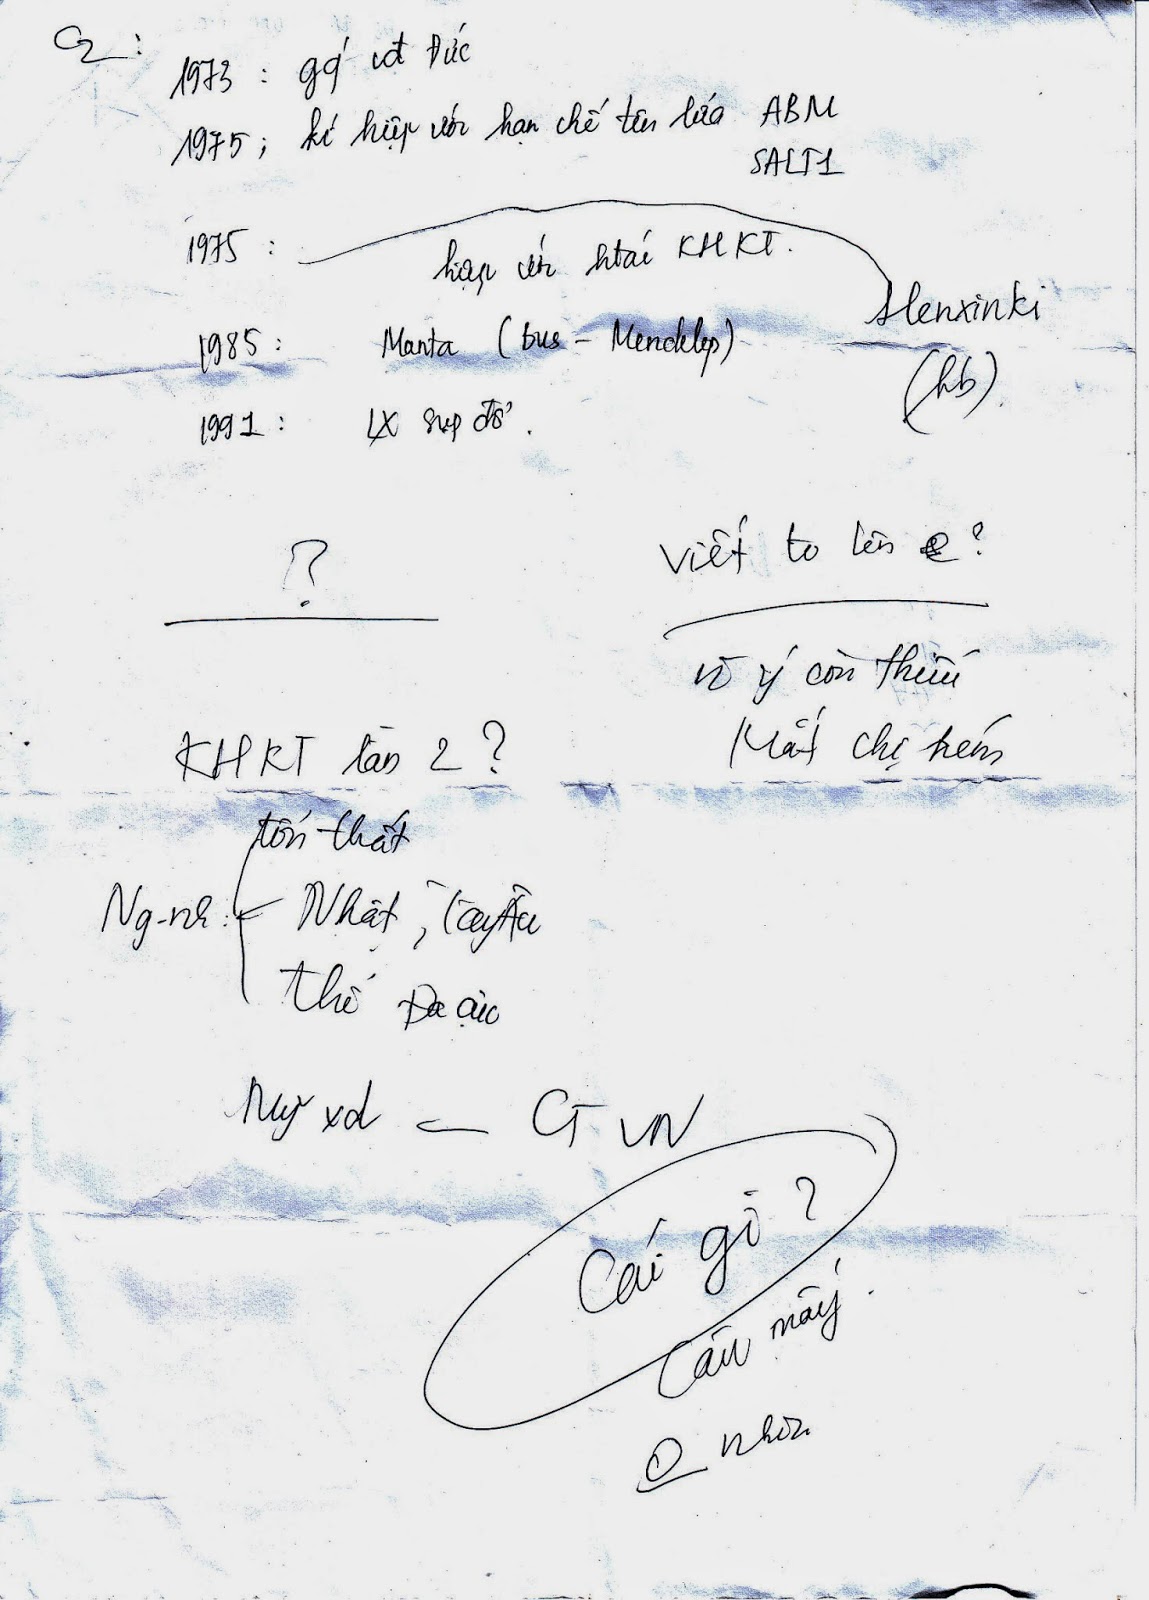 C2 :
1973 : gq' vđ Đức
1975 ; kí hiệp ước hạn chế tên lửa ABM
SALT1
1975 : hiệp ước htai KHKT. Henxinki
(hb).
1985 : Manta (bus - Mendelep)
1991 : LX sụp đổ.
?
viết to lên ?
vô ý còn thiếu
Mắt chị kém
KHKT lần 2 ?
tổn thất
Ng-nh : Nhật, Tây Âu
thế Đa cực
Mỹ xd — CT VN
Cái gì ?
Câu mấy.
nhìn